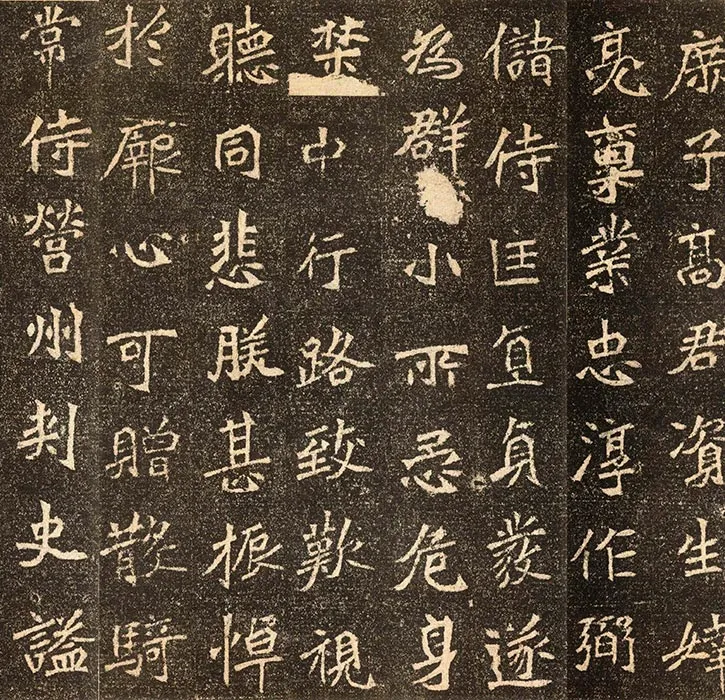 庶子高君資生
亮稟業忠淳作弼
儲侍匡直貞發遂
為群小所忌危身
禁中行路致歎視
聽同悲朕甚振悼
於厥心可贈散騎
常侍營州刾史謚